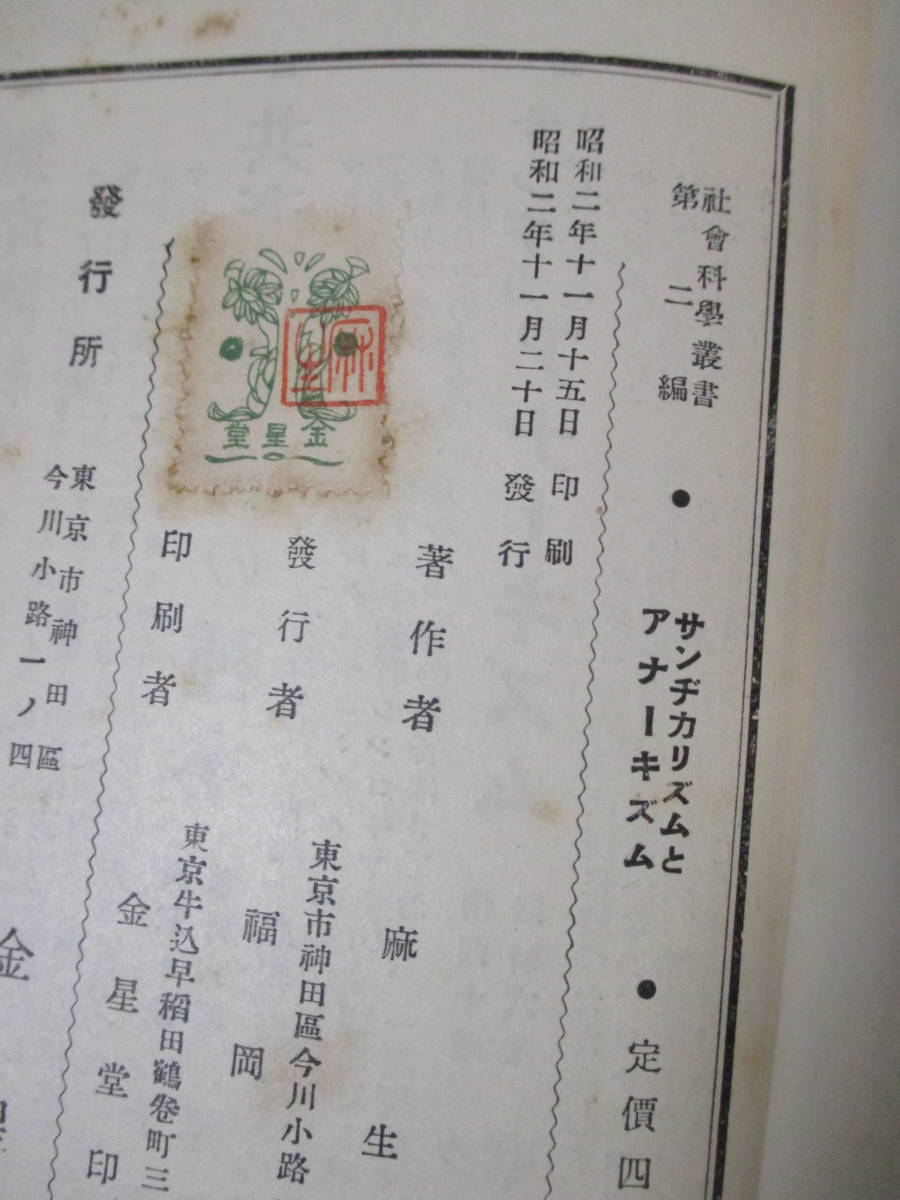 社會科學叢書
第二編
●
サンヂカリズムと
アナーキズム
● 定價四
昭和二年十一月十五日 印刷
昭和二年十一月二十日 發行
著作者 麻生
東京市神田區今川小路
發行者 福岡
東京牛込早稲田鶴卷町三
印刷者 金星堂印
金星堂
發行所
東京市神田區
今川小路一ノ四
金